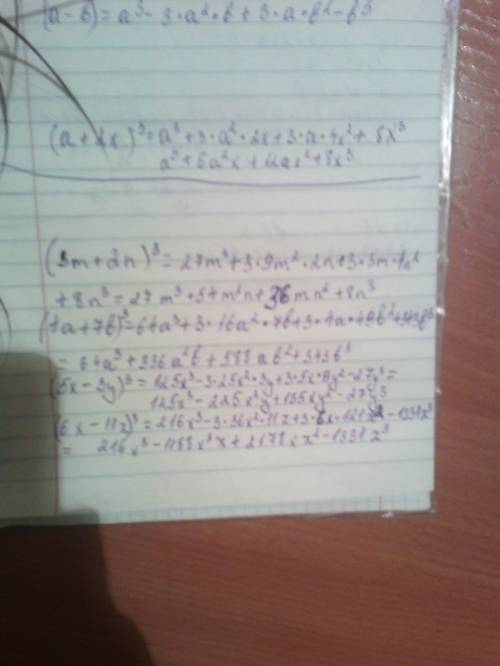 (a-b)=a³-3·a²·b+3·a·b²-b³
(a+2x)³=a³+3·a²·2x+3·a·4x²+8x³
a³+6a²x+12ax²+8x³
(3m+2n)³=27m³+3·9m²·2n+3·3m·4n²
+8n³=27m³+54m²n+36mn²+8n³
(4a+7b)³=64a³+3·16a²·7b+3·4a·49b²+343b³
=64a³+336a²b+588ab²+343b³
(5x-3y)³=125x³-3·25x²·3y+3·5x·9y²-27y³=
125x³-225x²y+135xy²-27y³
(6x-11z)³=216x³-3·36x²·11z+3·6x·121z²-1331z³
=216x³-1188x²z+2178xz²-1331z³